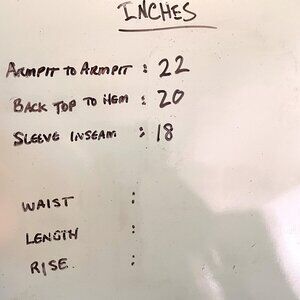 INCHES
ARMPIT TO ARMPIT : 22
BACK TOP TO HEM : 20
SLEEVE INSEAM : 18
WAIST :
LENGTH :
RISE :